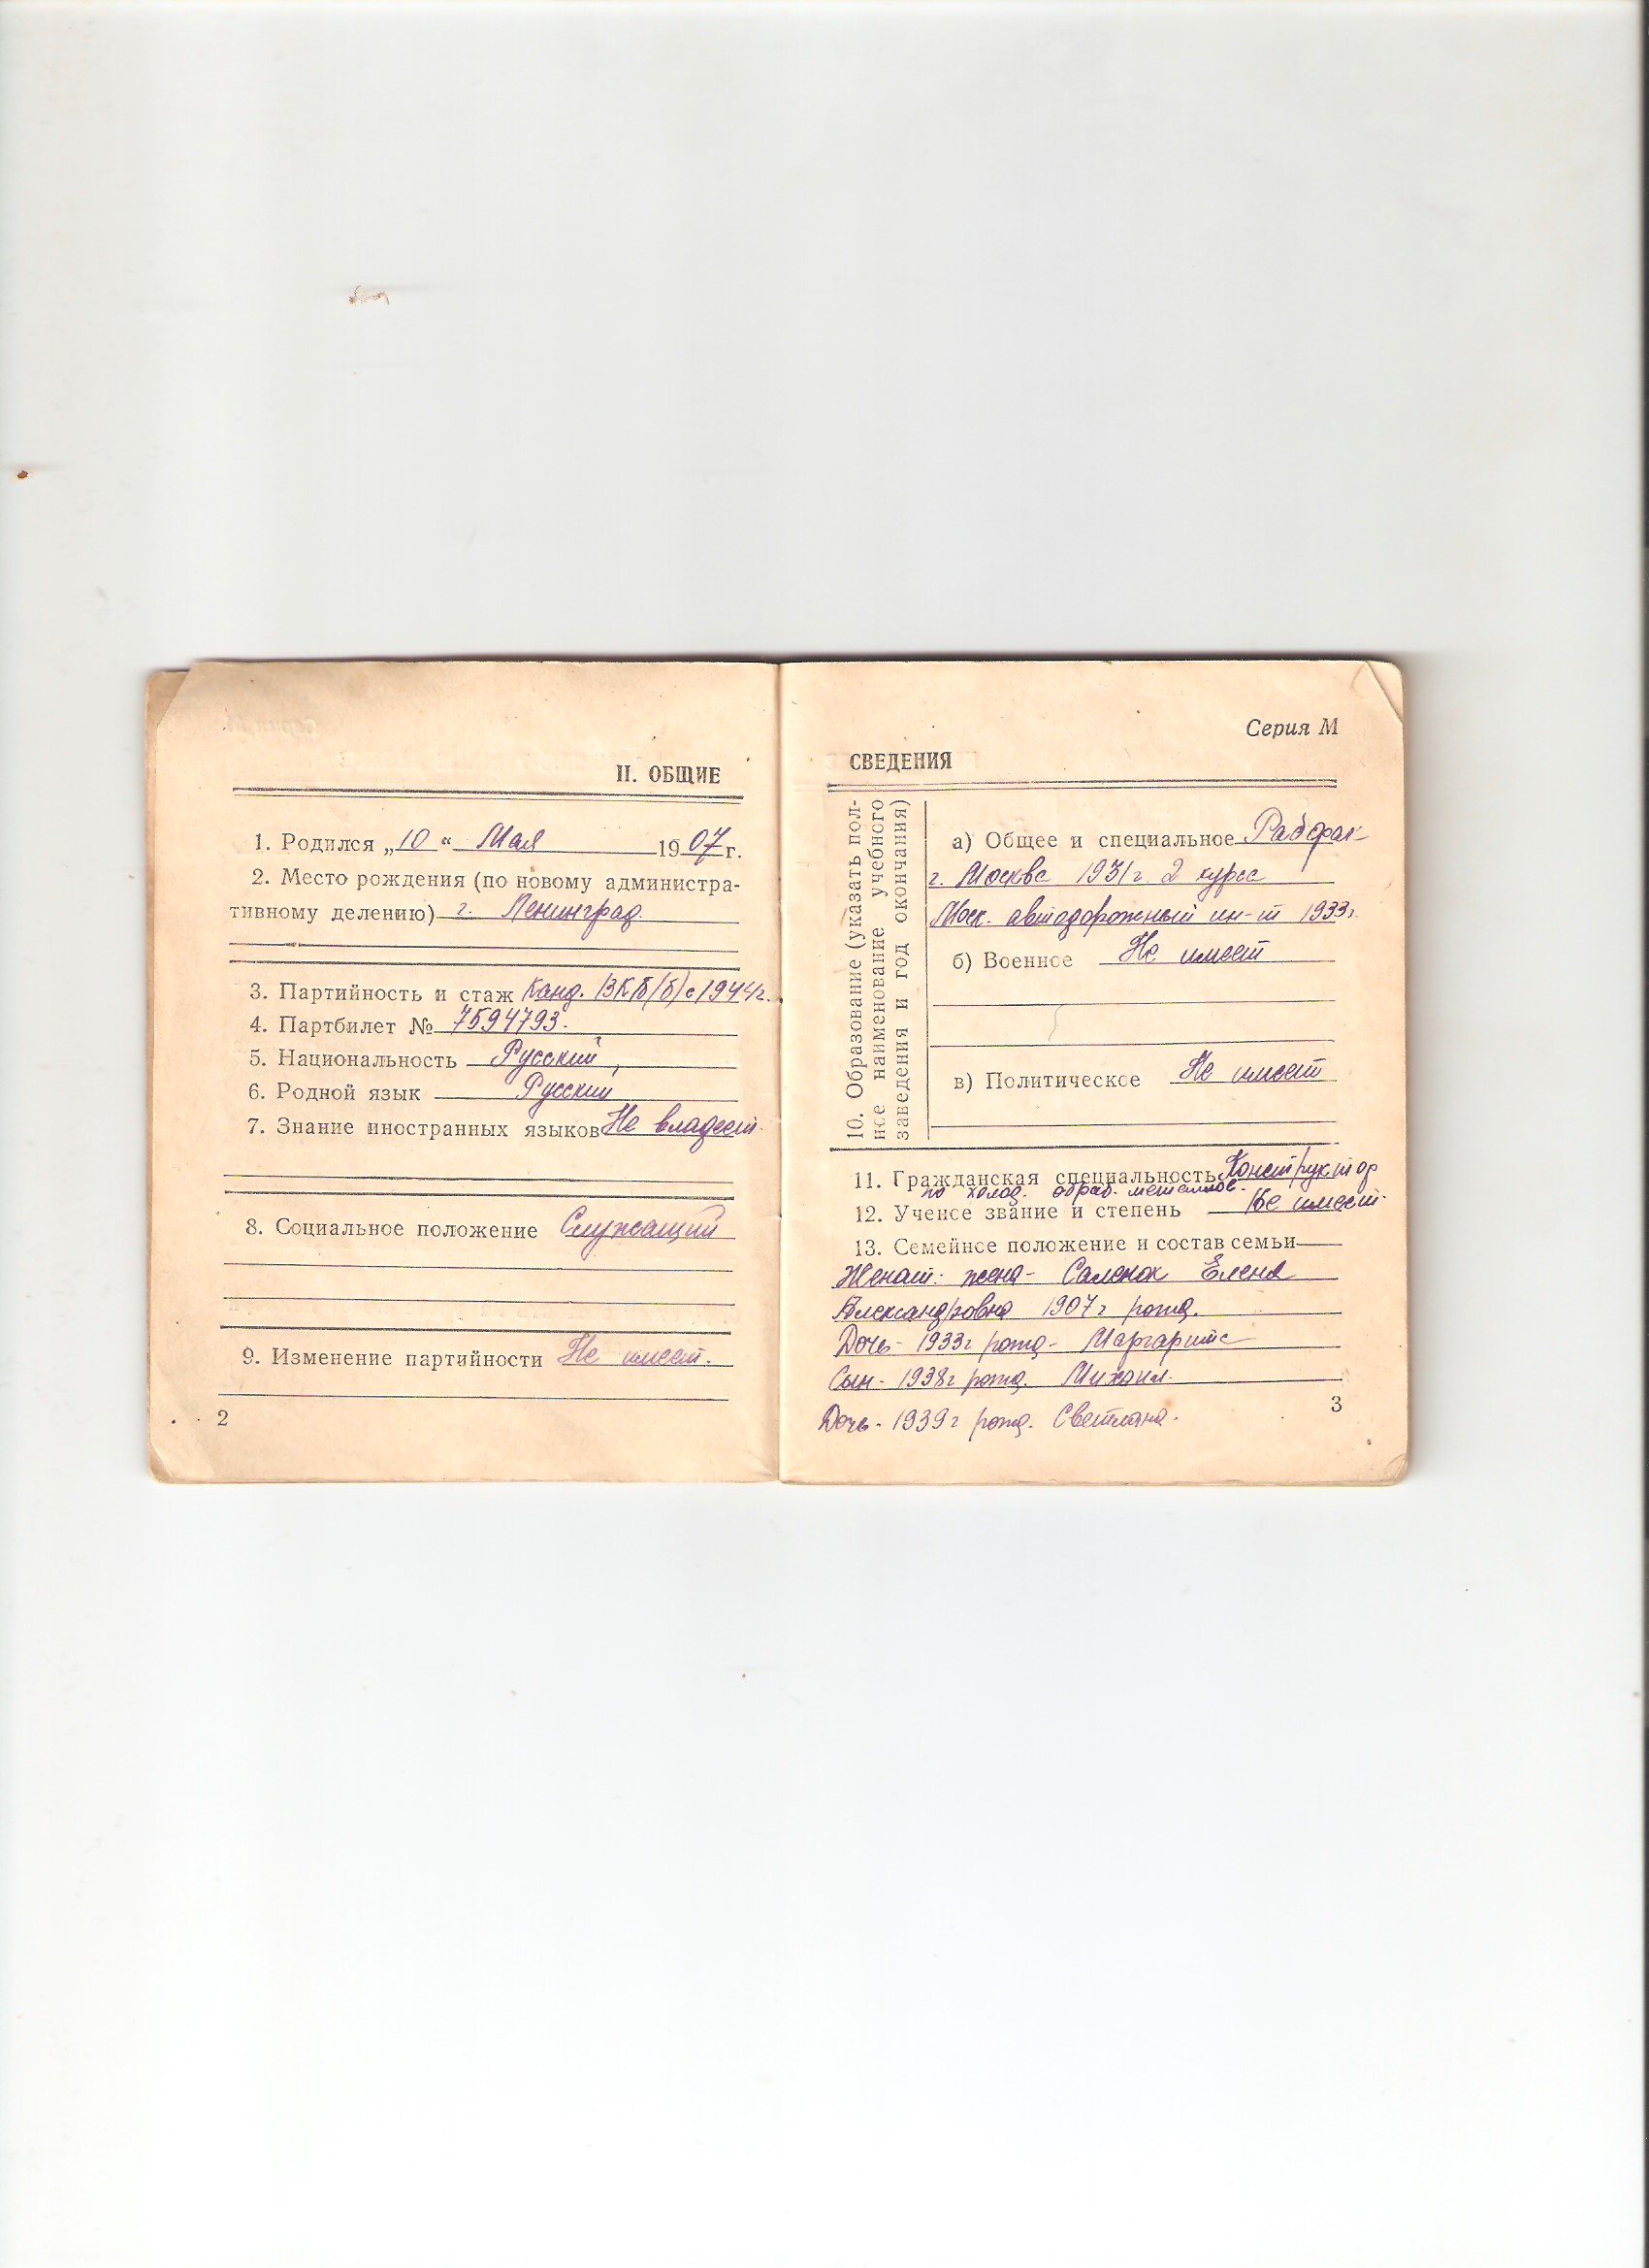 II. ОБЩИЕ
1. Родился „10“ Мая 1907 г.
2. Место рождения (по новому администра-
тивному делению) г. Ленинград.
3. Партийность и стаж Канд. ВКП/б/ с 1944 г.
4. Партбилет № 7594793.
5. Национальность Русский,
6. Родной язык Русский
7. Знание иностранных языков Не владеет.
8. Социальное положение Служащий
9. Изменение партийности Не имеет.
2
Серия М
СВЕДЕНИЯ
10. Образование (указать пол-
ное наименование учебного
заведения и год окончания)
а) Общее и специальное Рабфак
г. Москва 1931 г. 2 курса
Моск. автодорожный ин-т 1933 г.
б) Военное Не имеет
в) Политическое Не имеет
11. Гражданская специальность Конструктор
по холод. обраб. металлов.
12. Ученое звание и степень Не имеет.
13. Семейное положение и состав семьи
Женат: жена - Саленок Елена
Александровна 1907 г рожд.
Дочь - 1933 г рожд - Маргарита
Сын - 1938 г рожд. Михаил.
Дочь - 1939 г рожд. Светлана.
3